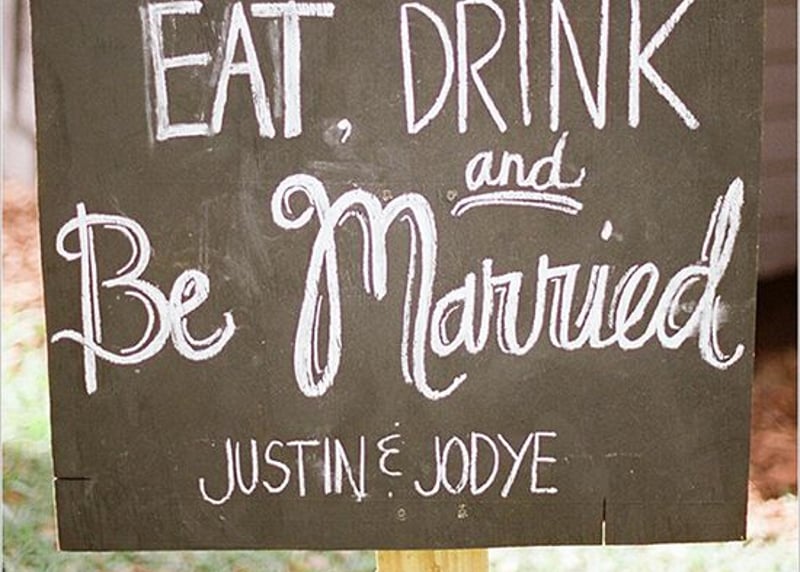 EAT, DRINK
and
Be Married
JUSTIN & JODYE